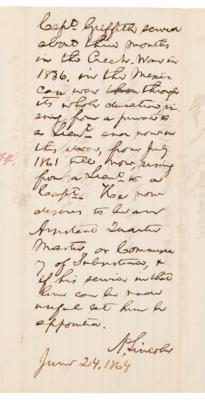 Capt. Griffith served
about three months
in the Creek War in
1836, in the Mexi-
can war through
its whole duration, ri-
sing from a private to
a Lieut. and now in
this war, from July
1861 till now, rising
from a Lieut. to a
Capt. He now
desires to be an
Assistant Quarter
Master or Commissa
ry of Subsistence, &
if his service in that
line can be made
useful let him be
appointed.
A. Lincoln
June 24, 1864